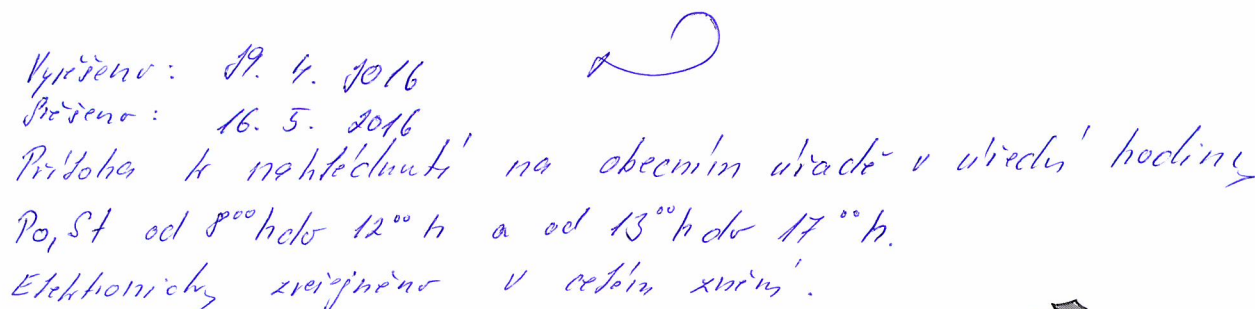 Vyvěšeno: 29. 4. 2016
Sněšeno: 16. 5. 2016
Příloha k nahlédnutí na obecním úřadě v úřední hodiny
Po, St od 8⁰⁰ h do 12⁰⁰ h a od 13⁰⁰ h do 17⁰⁰ h.
Elektronicky zveřejněno v celém znění.